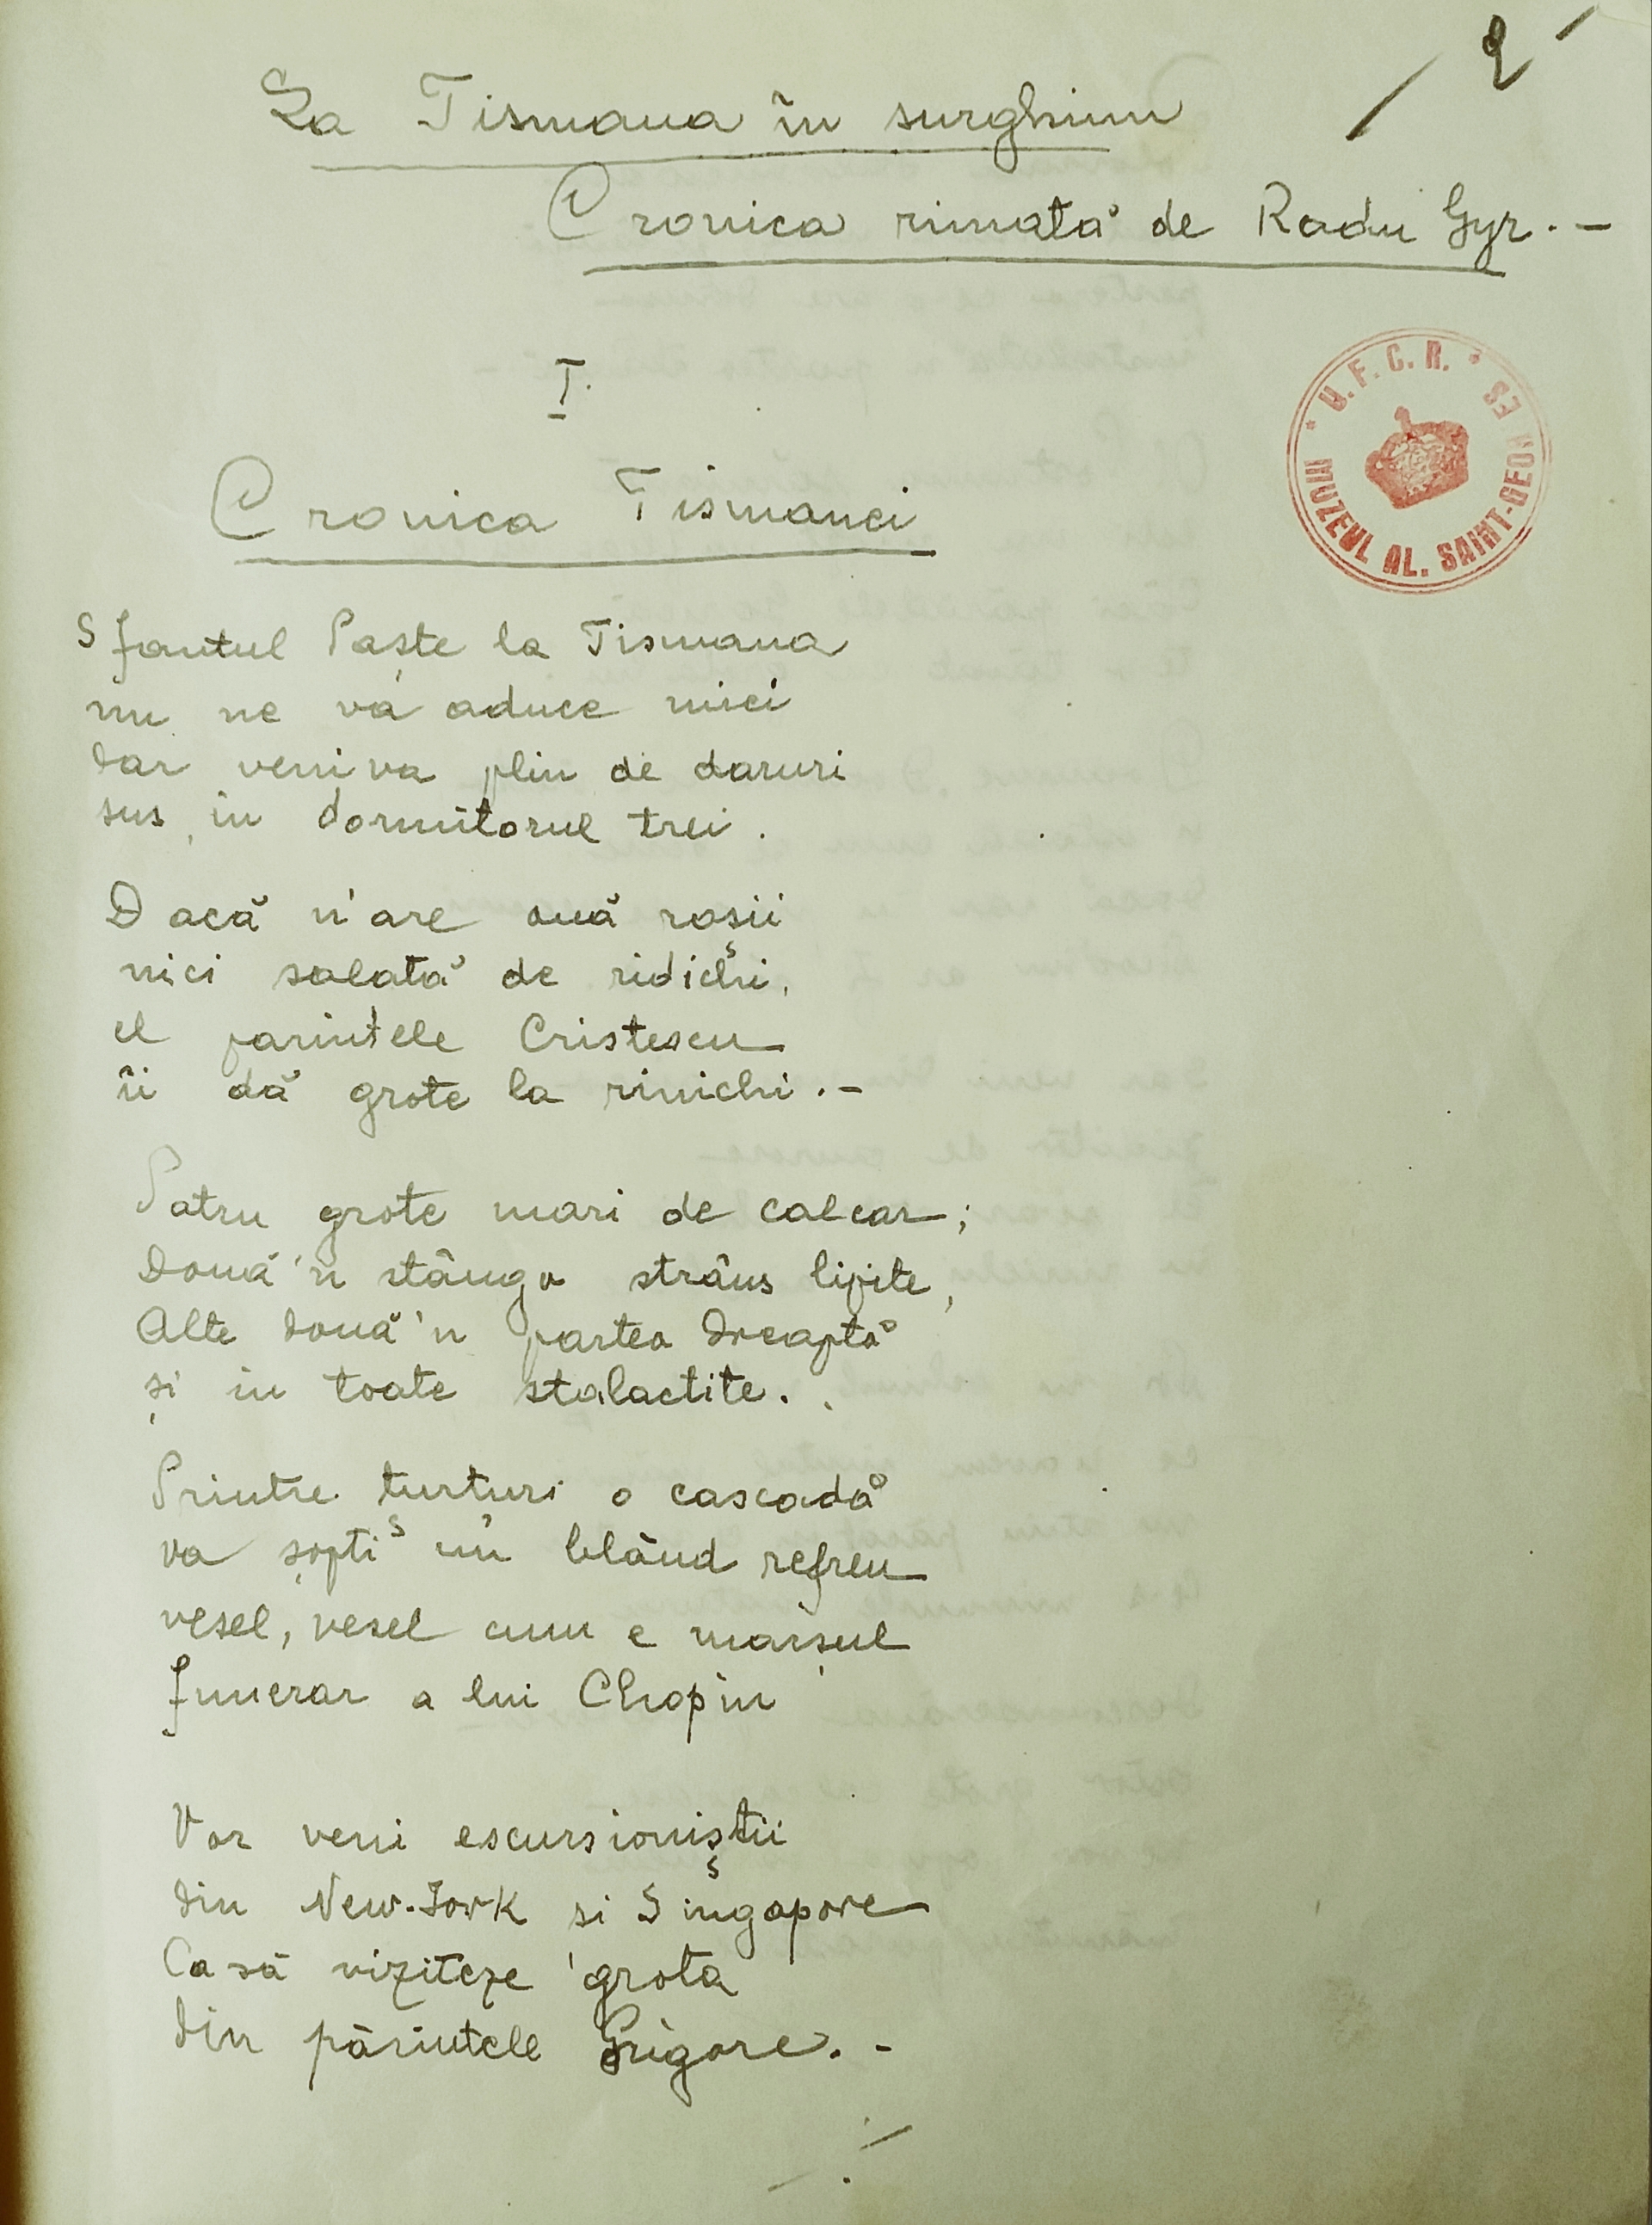 2
La Tismana în surghiun
Cronica rimată de Radu Gyr.-
I.
U.F.C.R. * MUZEUL AL. SAINT-GEORGES *
Cronica Tismanei
Sfantul Paște la Tismana
nu ne va aduce miei
dar veni va plin de daruri
sus, in dormitorul trei.
Dacă n'are ouă roșii
nici salată de ridichi,
el parintele Cristescu
îi dă grote la rinichi.-
Patru grote mari de calcar;
Două'n stânga strâns lipite,
Alte două'n partea dreaptă
și in toate stalactite.
Printre turturi o cascadă
va șopti un blând refren
vesel, vesel cum e marșul
funerar a lui Chopin
Vor veni escursioniștii
din New-York si Singapore
Ca să viziteze grota
din părintele Grigore.-